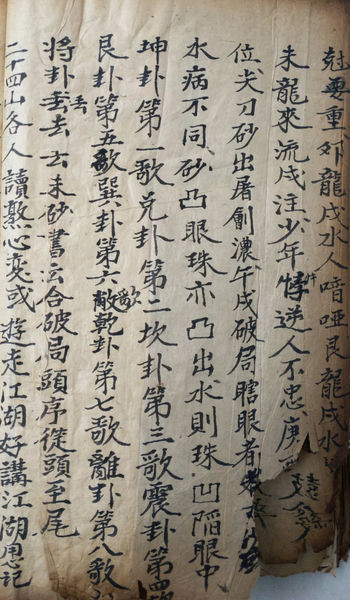 尅要重外龍戌水人喑啞艮龍戌水
未龍來流戌注少年悖逆人不忠庚
位尖刀砂出屠劊濃午戌破局瞎眼者
水病不同砂凸眼珠亦凸出水則珠凹陷眼中
坤卦第一歌兌卦第二坎卦第三歌震卦第四歌
艮卦第五歌巽卦第六歌乾卦第七歌離卦第八歌
將卦丟去去未砂書云合破局頭序從頭至尾
二十四山各人讀熟心変或遊走江湖好講江湖思记